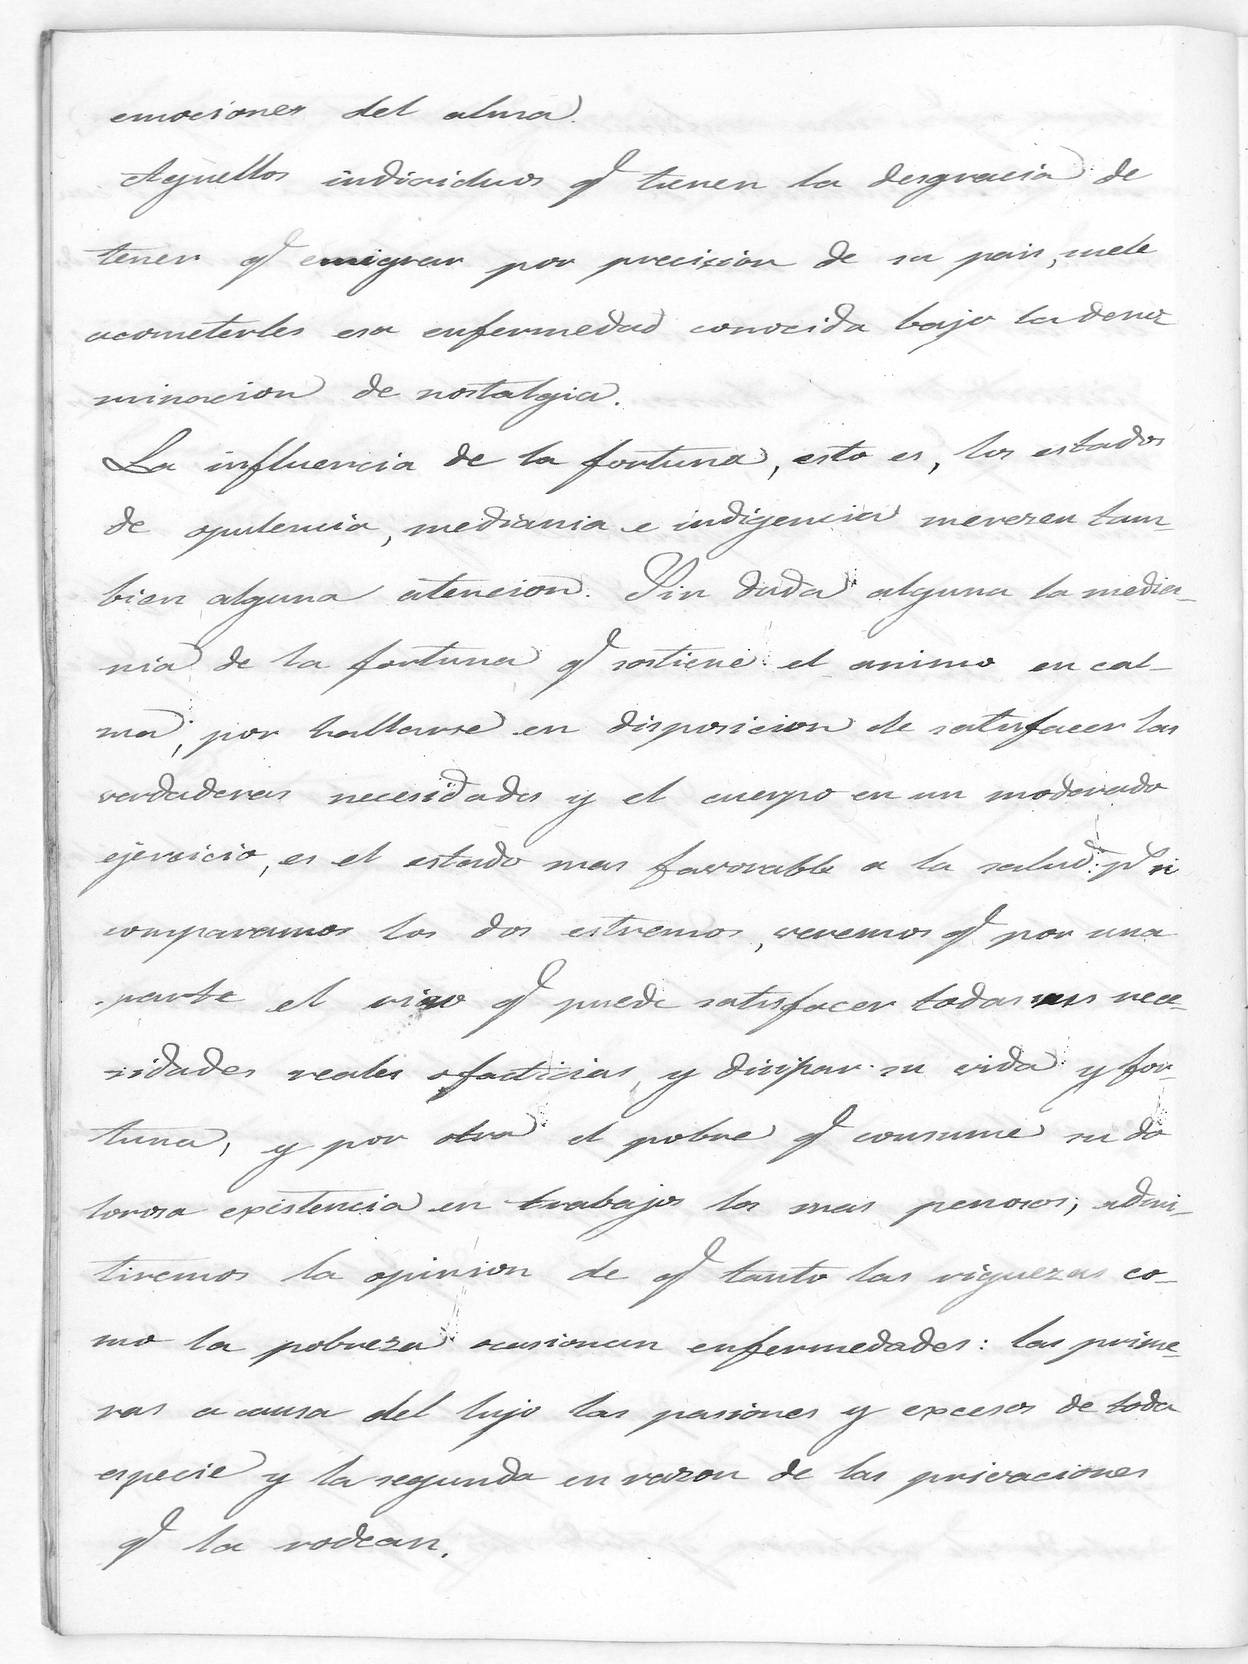 emociones del alma.
Aquellos individuos q.e tienen la desgracia de
tener q.e emigrar por precision de su pais, suele
acometerles esa enfermedad conocida bajo la deno-
minacion de nostalgia.
La influencia de la fortuna, esto es, los estados
de opulencia, mediania e indigencia merezen tam-
bien alguna atencion. Sin duda alguna la media-
nia de la fortuna q.e sostiene el animo en cal-
ma, por hallarse en disposicion de satisfacer las
verdaderas necesidades y el cuerpo en un moderado
ejercicio, es el estado mas favorable a la salud. p.r si
comparamos los dos estremos, veremos q.e por una
parte el rico q.e puede satisfacer todas sus nece-
sidades reales o facticias, y disipar su vida y for-
tuna, y por otra el pobre q.e consume su do
lorosa existencia en trabajos los mas penosos; admi-
tiremos la opinion de q.e tanto las riquezas co-
mo la pobreza ocasionan enfermedades: las prime-
ras a causa del lujo las pasiones y excesos de toda
especie y la segunda en razon de las privaciones
q.e la rodean.